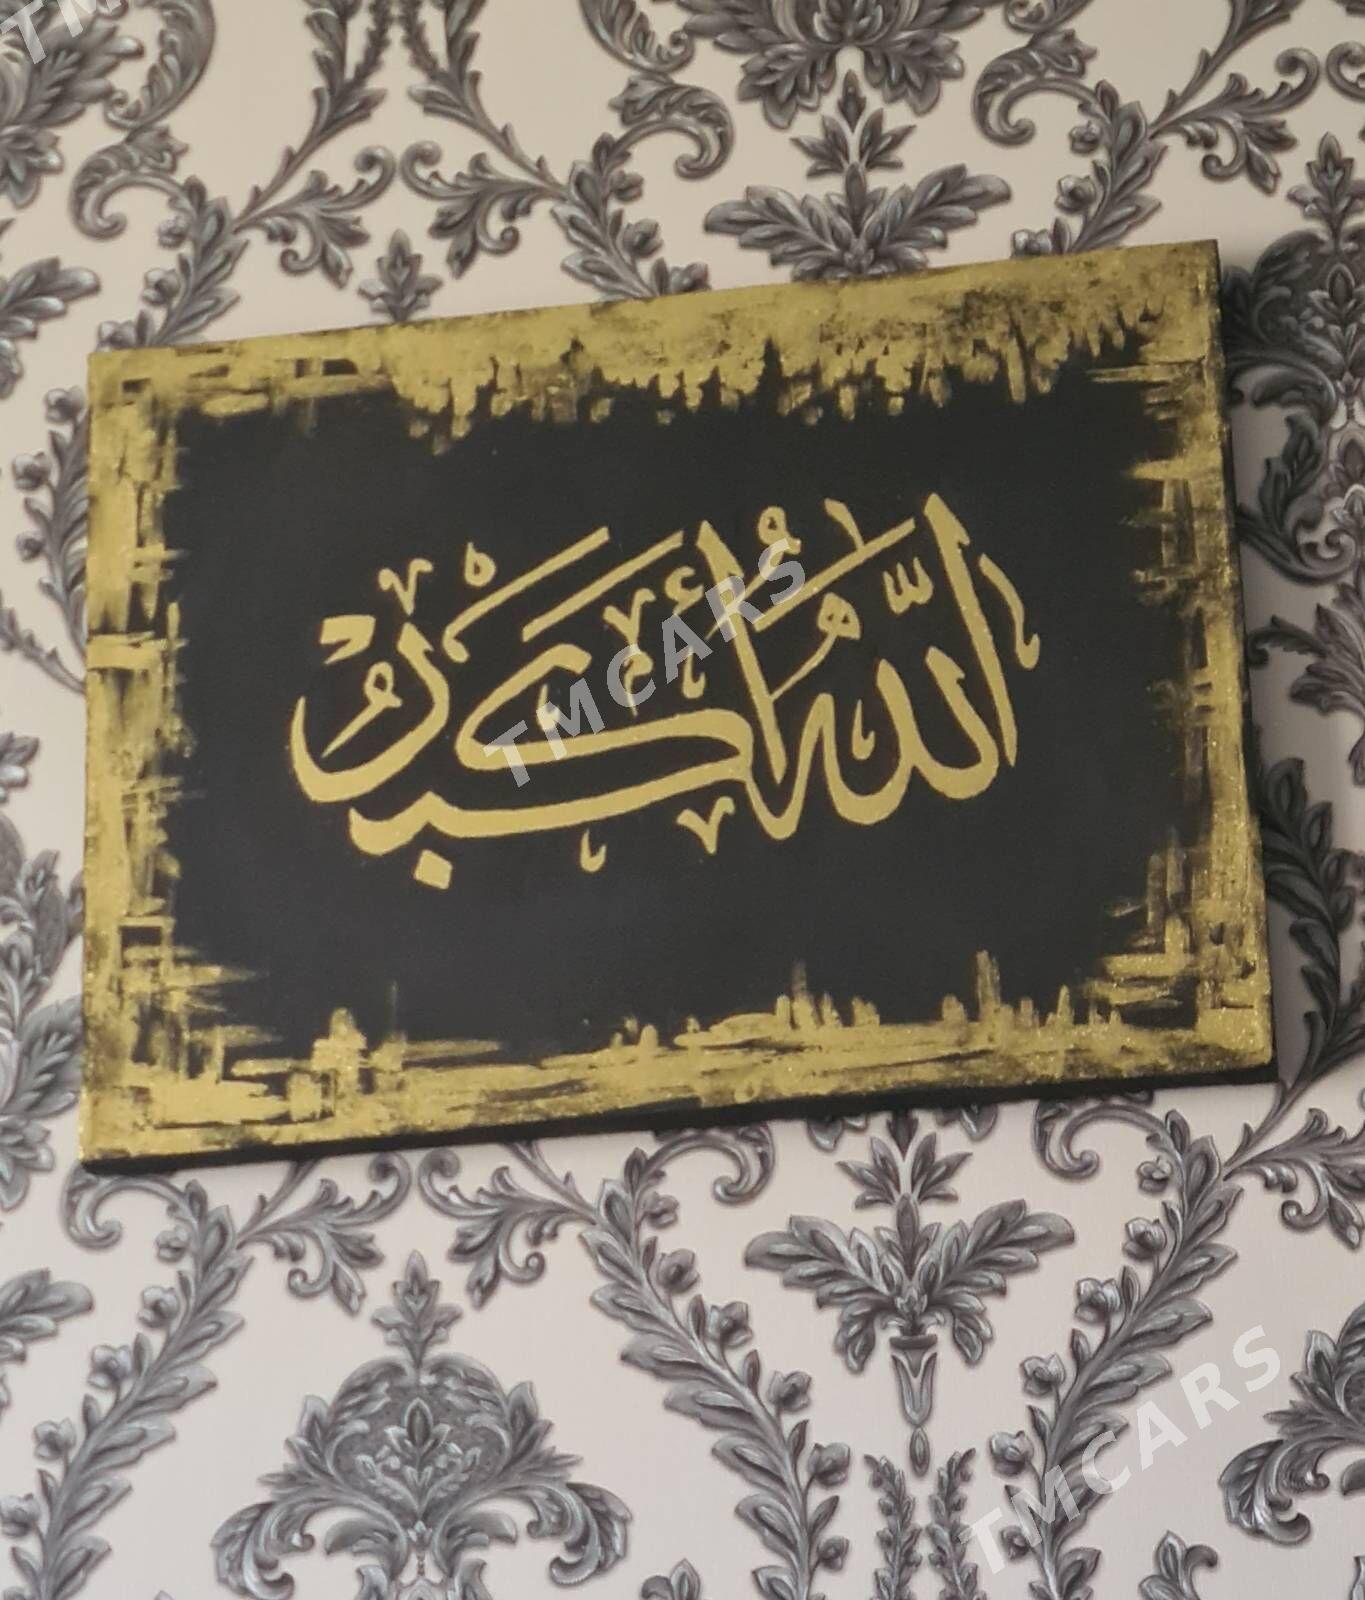 TMCARS
اللهُ أَكْبَرُ
TMCARS
TMCARS